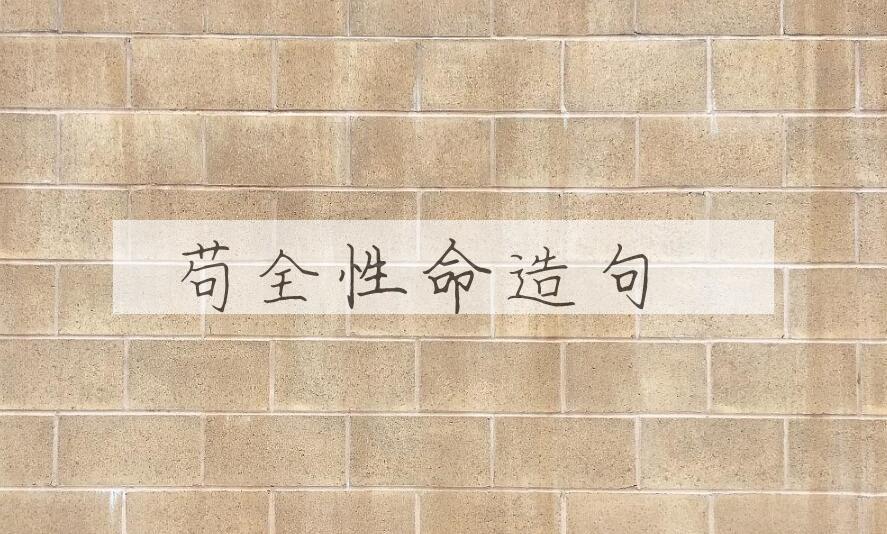 苟全性命造句